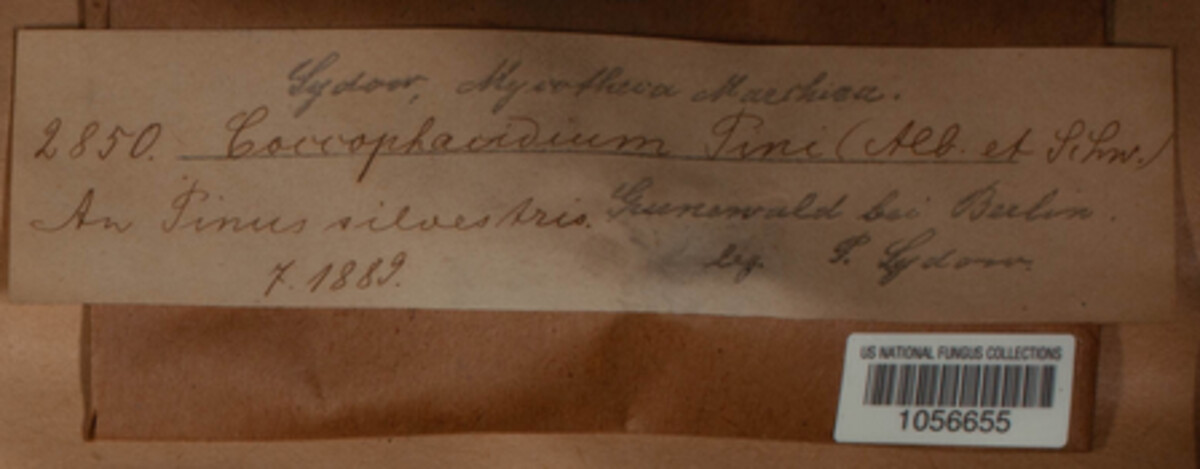 Sydow, Mycotheca Marchica.
2850. Coccophacidium Pini (Alb. et Schw.)
An Pinus silvestris. Grunewald bei Berlin.
7. 1889. leg. P. Sydow.
US NATIONAL FUNGUS COLLECTIONS
1056655